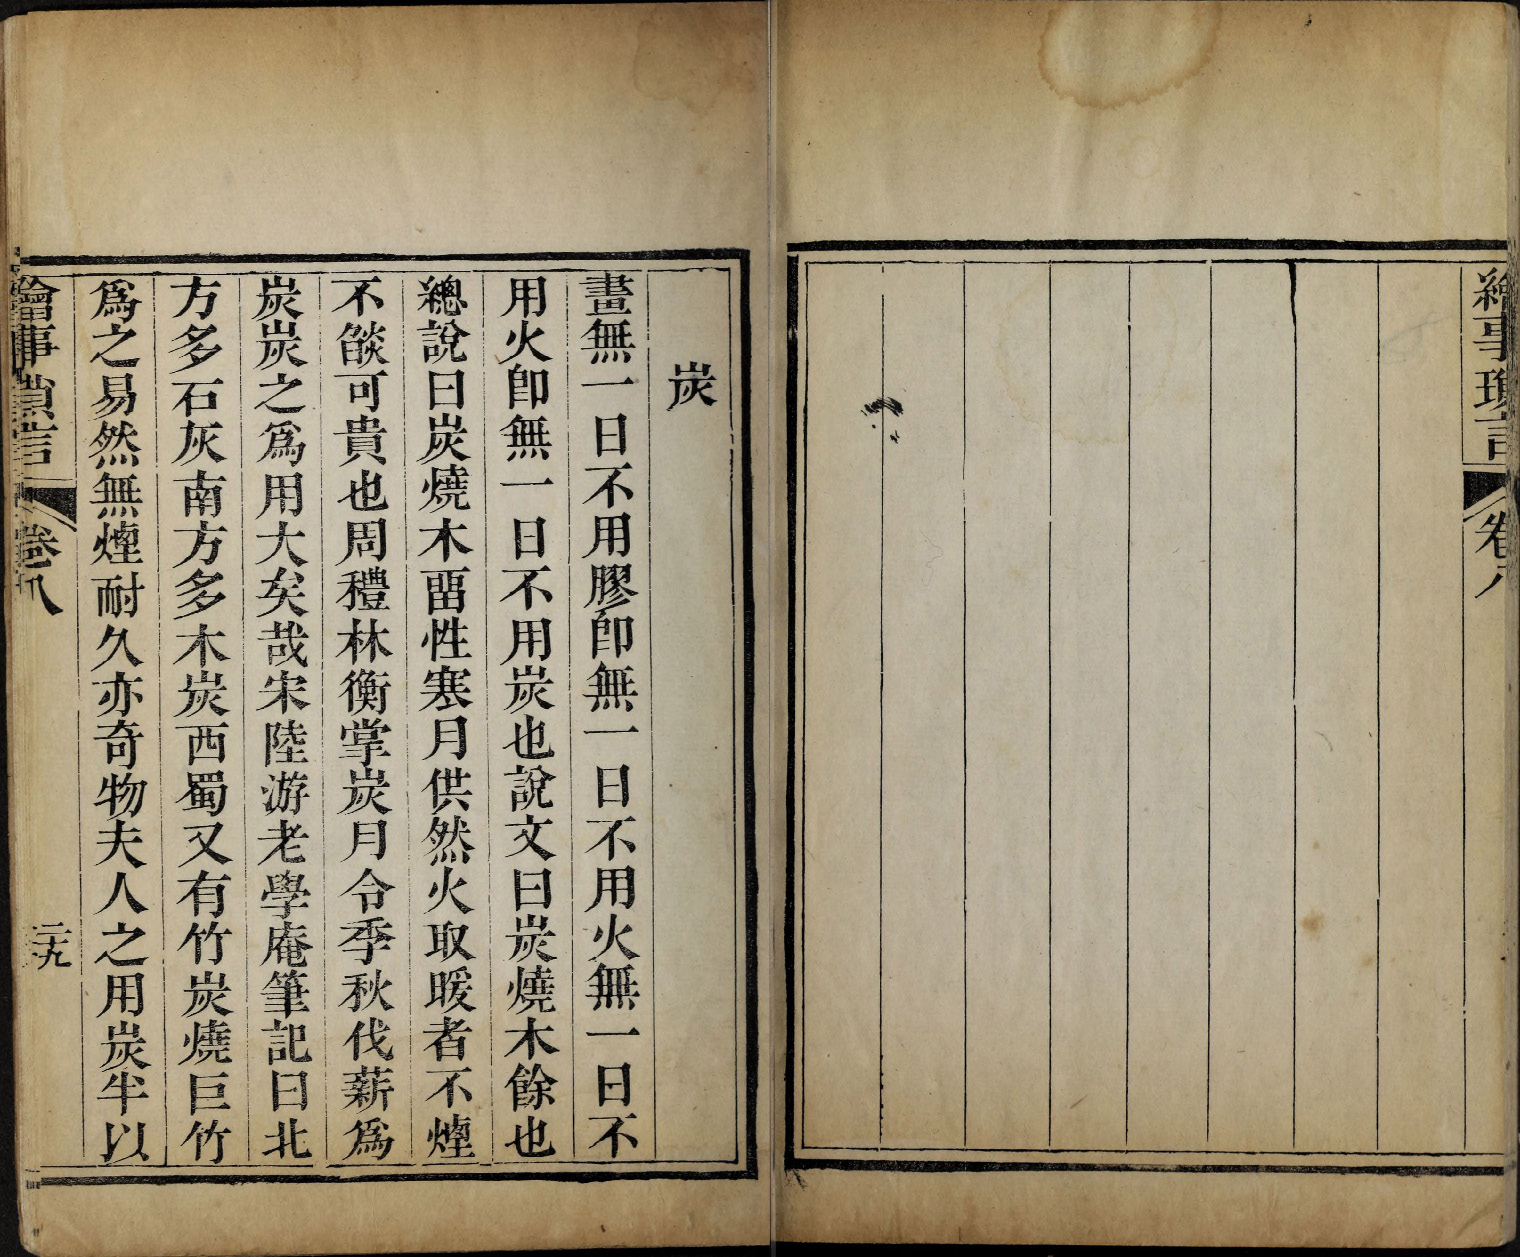 繪事瑣言
卷八
炭
畫無一日不用膠卽無一日不用火無一日不
用火卽無一日不用炭也說文曰炭燒木餘也
總說曰炭燒木畱性寒月供然火取暖者不煙
不燄可貴也周禮林衡掌炭月令季秋伐薪爲
炭炭之爲用大矣哉宋陸游老學庵筆記曰北
方多石灰南方多木炭西蜀又有竹炭燒巨竹
爲之易然無煙耐久亦奇物夫人之用炭半以
繪事瑣言
卷八
二九